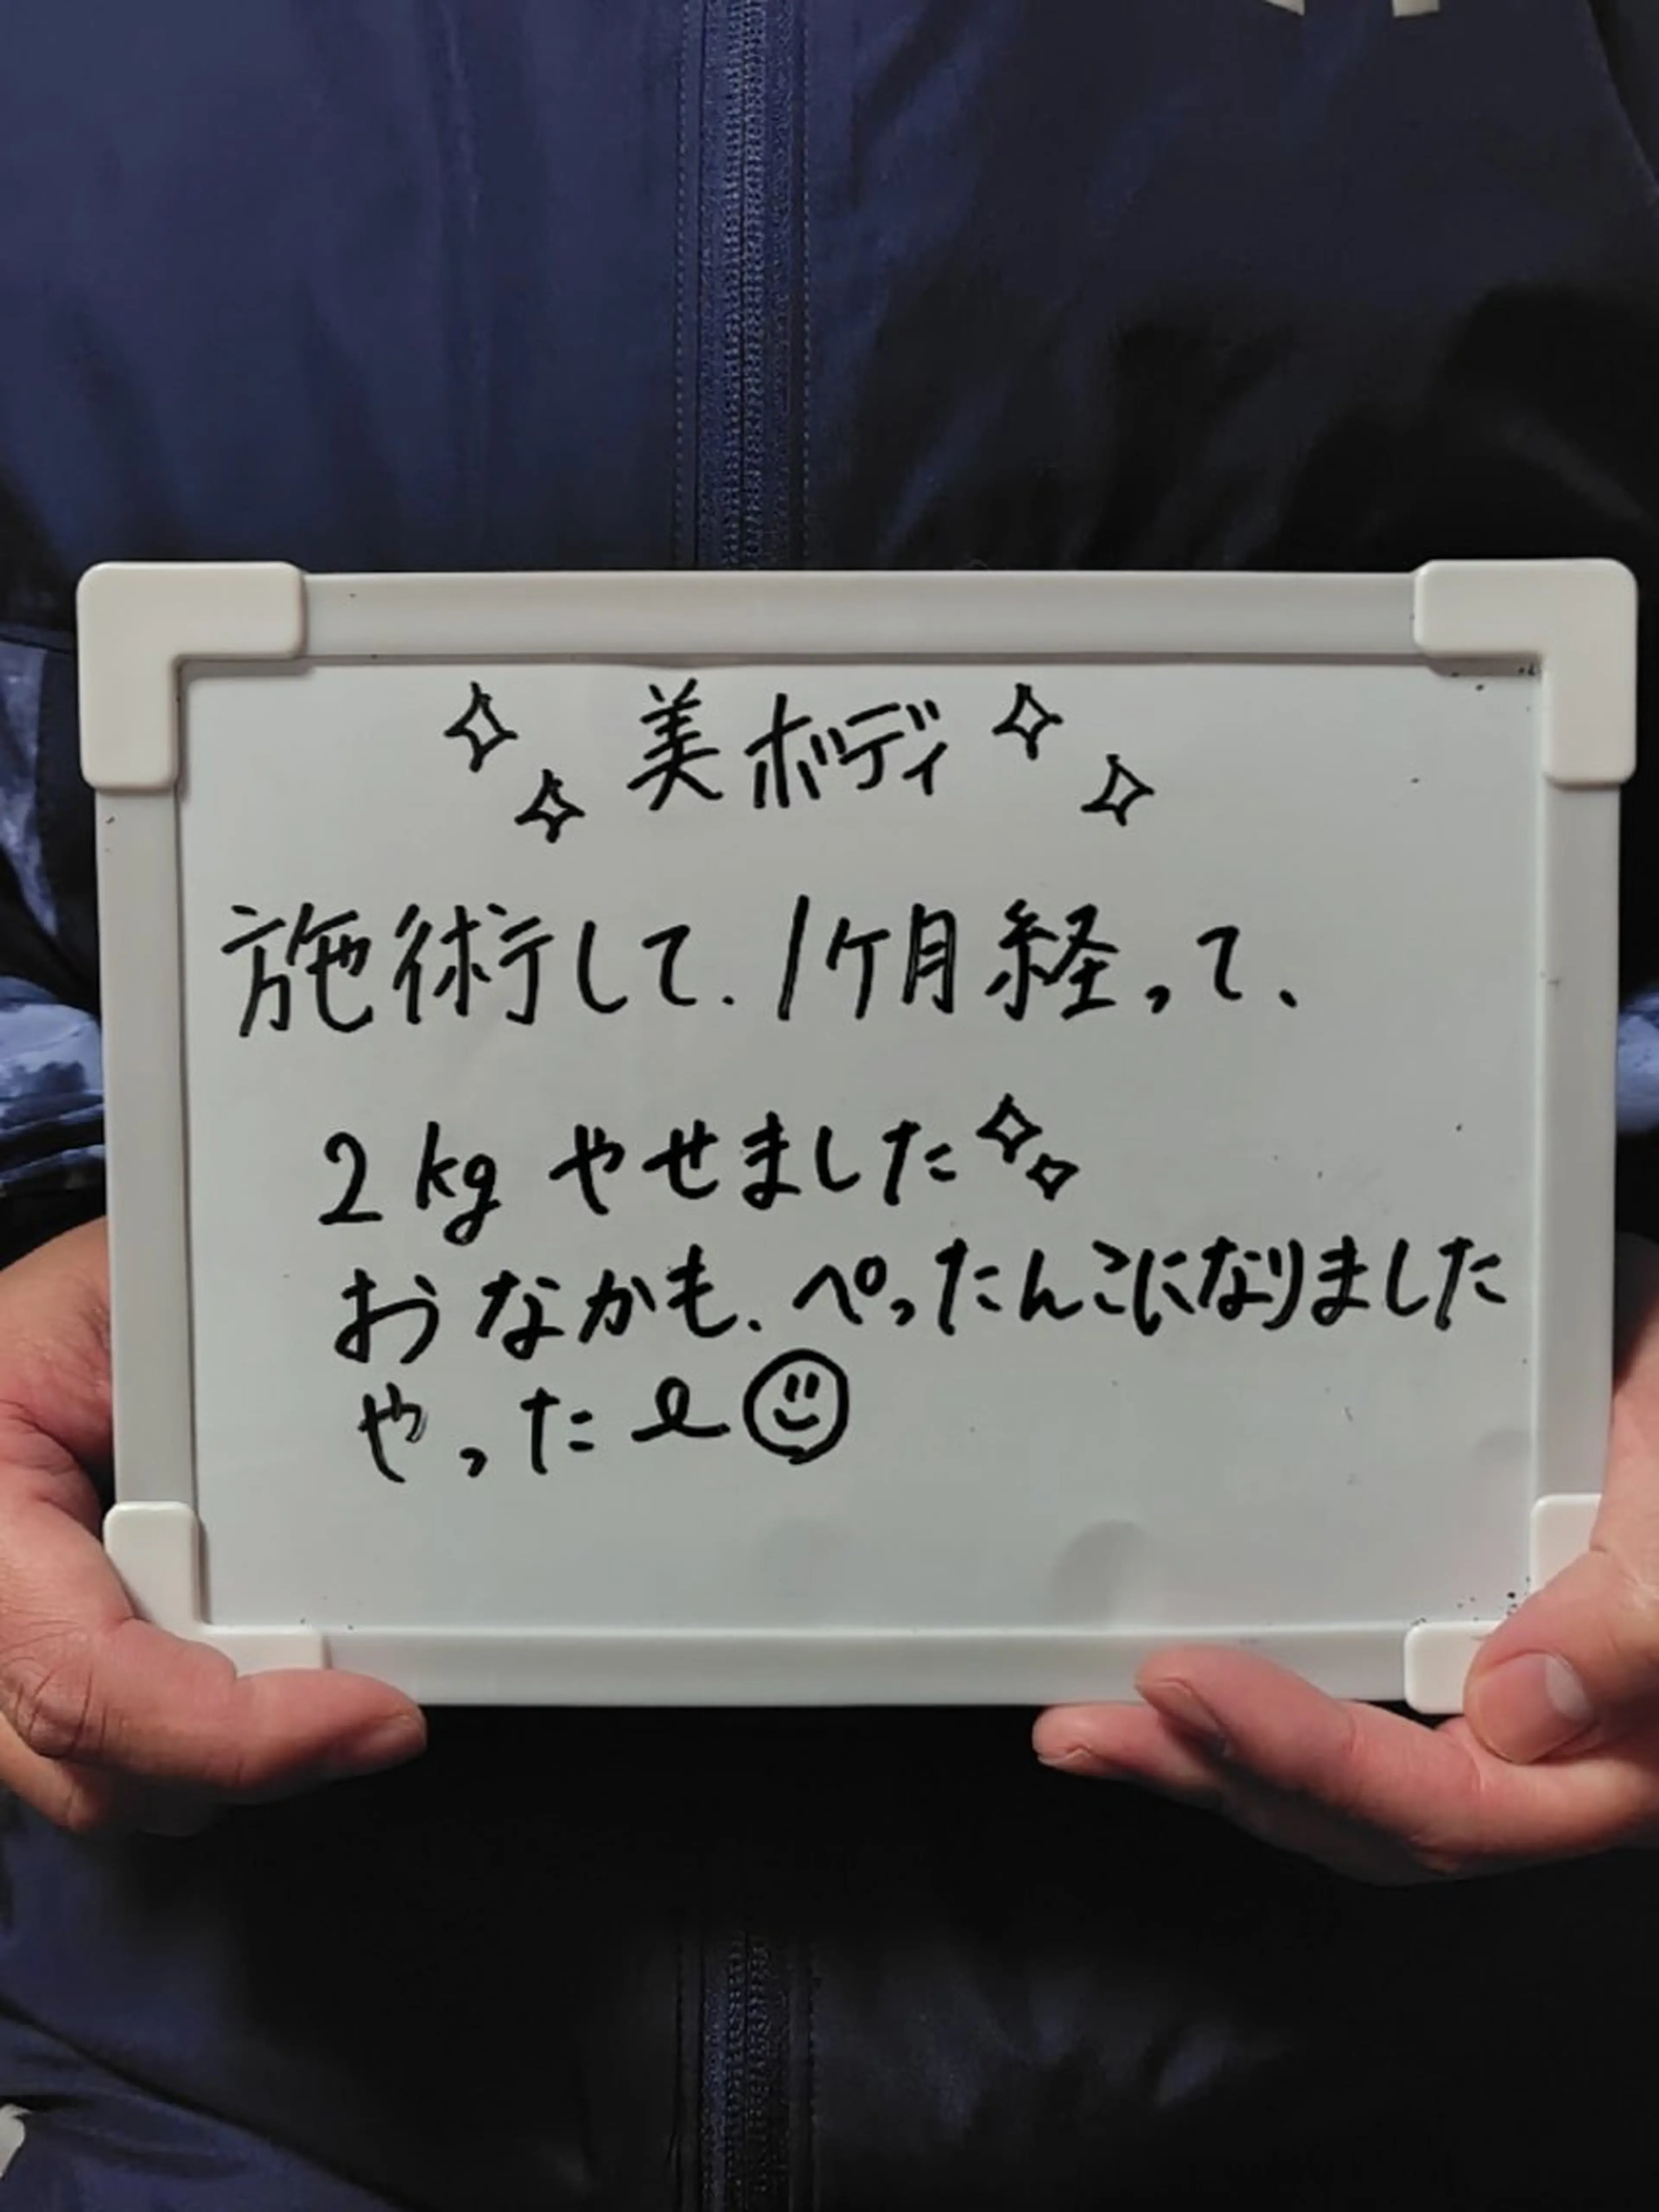 美ボディ
施術して、1ヶ月経って、
2kgやせました
おなかも、ぺったんこになりました
やった